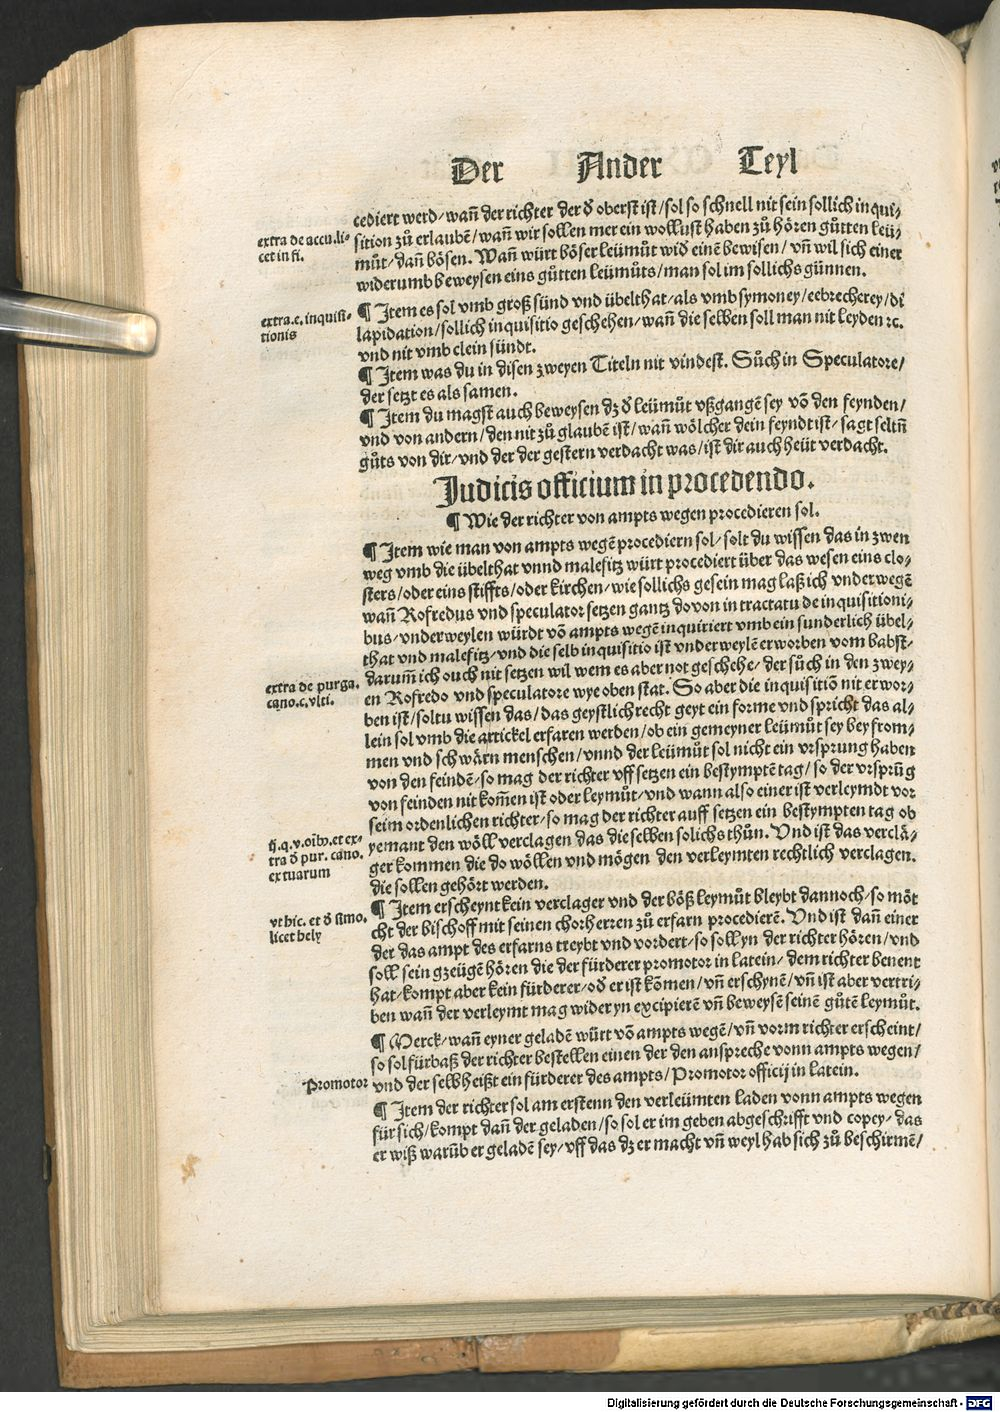 Der Ander Teyl
cediert werd/wañ der richter der ð oberst ist/sol so schnell nit sein sollich in qui⸗
extra de accu.li⸗
cet in fi.
sition zů erlaubē/wañ wir sollen mer ein wollust haben zů hören gůtten leü⸗
můt/dañ bösen. Wañ würt böser leümůt wið einē bewisen/vñ wil sich einer
widerumb beweysen eins gůtten leümůts/man sol im sollichs günnen.
extra.e.inquisi⸗
tionis
¶ Item es sol vmb groß sünd vnd übelthat/als vmb symoney/eebrecherey/di
lapidation/sollich inquisitio geschehen/wañ die selben soll man nit leyden ꝛc.
vnd nit vmb clein sündt.
¶ Item was du in disen zweyen Titeln nit vindest. Sůch in Speculatore/
der setzt es als samen.
¶ Item du magst auch beweysen dz ð leümůt vßgangē sey vō den feynden/
vnd von andern/den nit zů glaubē ist/wañ wölcher dein feyndt ist/sagt seltñ
gůts von dir/vnd der der gestern verdacht was/ist dir auch heüt verdacht.
Judicis officium in procedendo.
¶ Wie der richter von ampts wegen procedieren sol.
¶ Item wie man von ampts wegē procediern sol/solt du wissen das in zwen
weg vmb die übelthat vnnd malefitz würt procediert über das wesen eins clo⸗
sters/oder eins stiffts/oder kirchen/wie sollichs gesein mag laß ich vnderwegē
wañ Rofredus vnd speculator setzen gantz dovon in tractatu de inquisitioni⸗
bus/vnderweylen würdt vō ampts wegē inquiriert vmb ein sunderlich übel⸗
that vnd malefitz/vnd die selb inquisitio ist vnderweylē erworben vom babst/
darum̄ ich ouch nit setzen wil wem es aber not geschehe/der sůch in den zwey⸗
extra de purga.
cano.c.vlti.
en Rofredo vnd speculatore wye oben stat. So aber die inquisitiō nit erwor⸗
ben ist/soltu wissen das/das geystlich recht geyt ein forme vnd spricht das al⸗
lein sol vmb die artickel erfaren werden/ob ein gemeyner leümůt sey bey from⸗
men vnd schwårn menschen/vnnd der leümůt sol nicht ein vrsprung haben
von den feindē/so mag der richter vff setzen ein bestymptē tag/so der vrsprūg
von feinden nit kom̄en ist oder leymůt/vnd wann also einer ist verleymdt vor
seim ordenlichen richter/so mag der richter auff setzen ein bestympten tag ob
yemant den wöll verclagen das die selben solichs thůn. Vnd ist das verclå⸗
ij.q.v.oīb9.et ex⸗
tra ð pur. cano.
ex tuarum
ger kommen die do wöllen vnd mögen den verleymten rechtlich verclagen.
die sollen gehört werden.
¶ Item erscheynt kein verclager vnd der böß leymůt bleybt dannoch/so möt
vt hic. et ð simo.
licet hely
cht der bischoff mit seinen chorherren zů erfarn procedierē. Vnd ist dañ einer
der das ampt des erfarns treybt vnd vordert/so soll yn der richter hören/vnd
soll sein gzeügē hören die der fürderer promotor in latein/dem richter benent
hat/kompt aber kein fürderer/oð er ist kōmen/vñ erschynē/vñ ist aber vertri⸗
ben wañ der verleymt mag wider yn excipierē vñ beweysē seinē gůtē leymůt.
¶ Merck/wañ eyner geladē würt vō ampts wegē/vñ vorm richter erscheint/
so sol fürbaß der richter bestellen einen der den anspreche vonn ampts wegen/
Promotor
vnd der selb heißt ein fürderer des ampts/Promotor officij in latein.
¶ Item der richter sol am erstenn den verleümten laden vonn ampts wegen
für sich/kompt dañ der geladen/so sol er im geben abgeschrifft vnd copey/das
er wiß warūb er geladē sey/vff das dz er macht vñ weyl hab sich zů beschirmē/
Digitalisierung gefördert durch die Deutsche Forschungsgemeinschaft - DFG